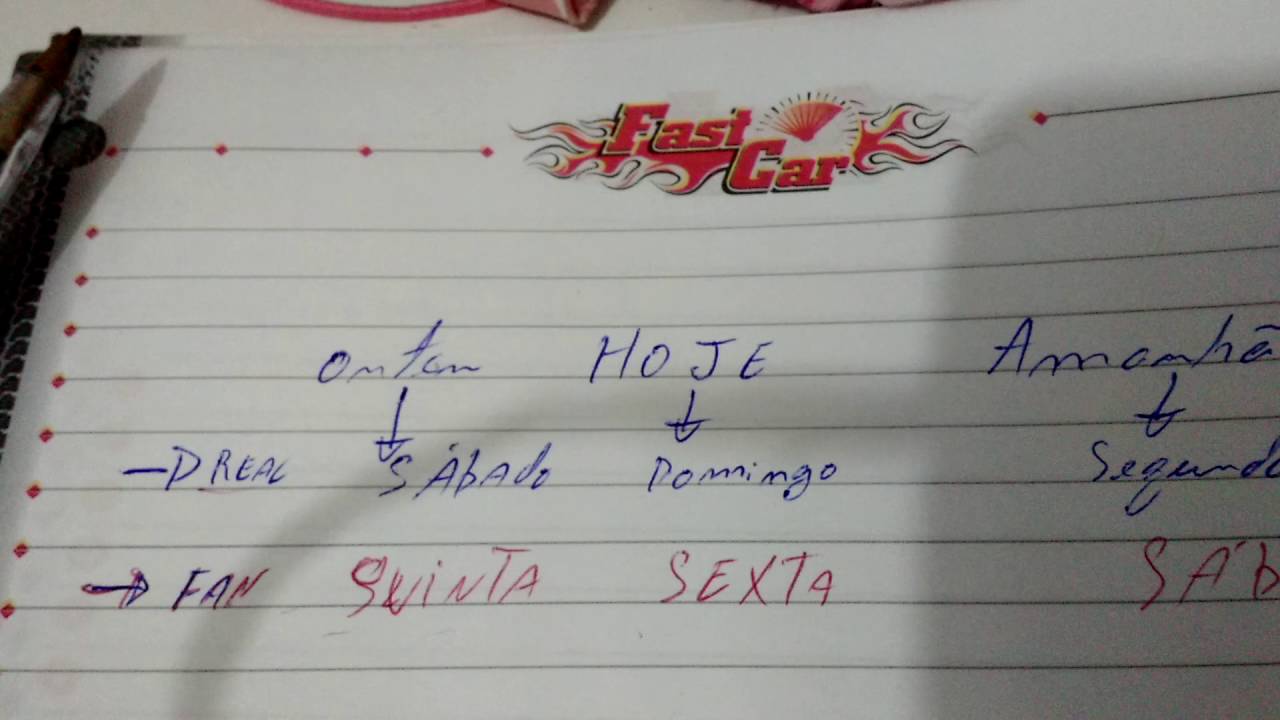 Fast
Car
Ontem HOJE Amanhã
REAL SÁBADO Domingo Segunda
FAN QUINTA SEXTA SÁB